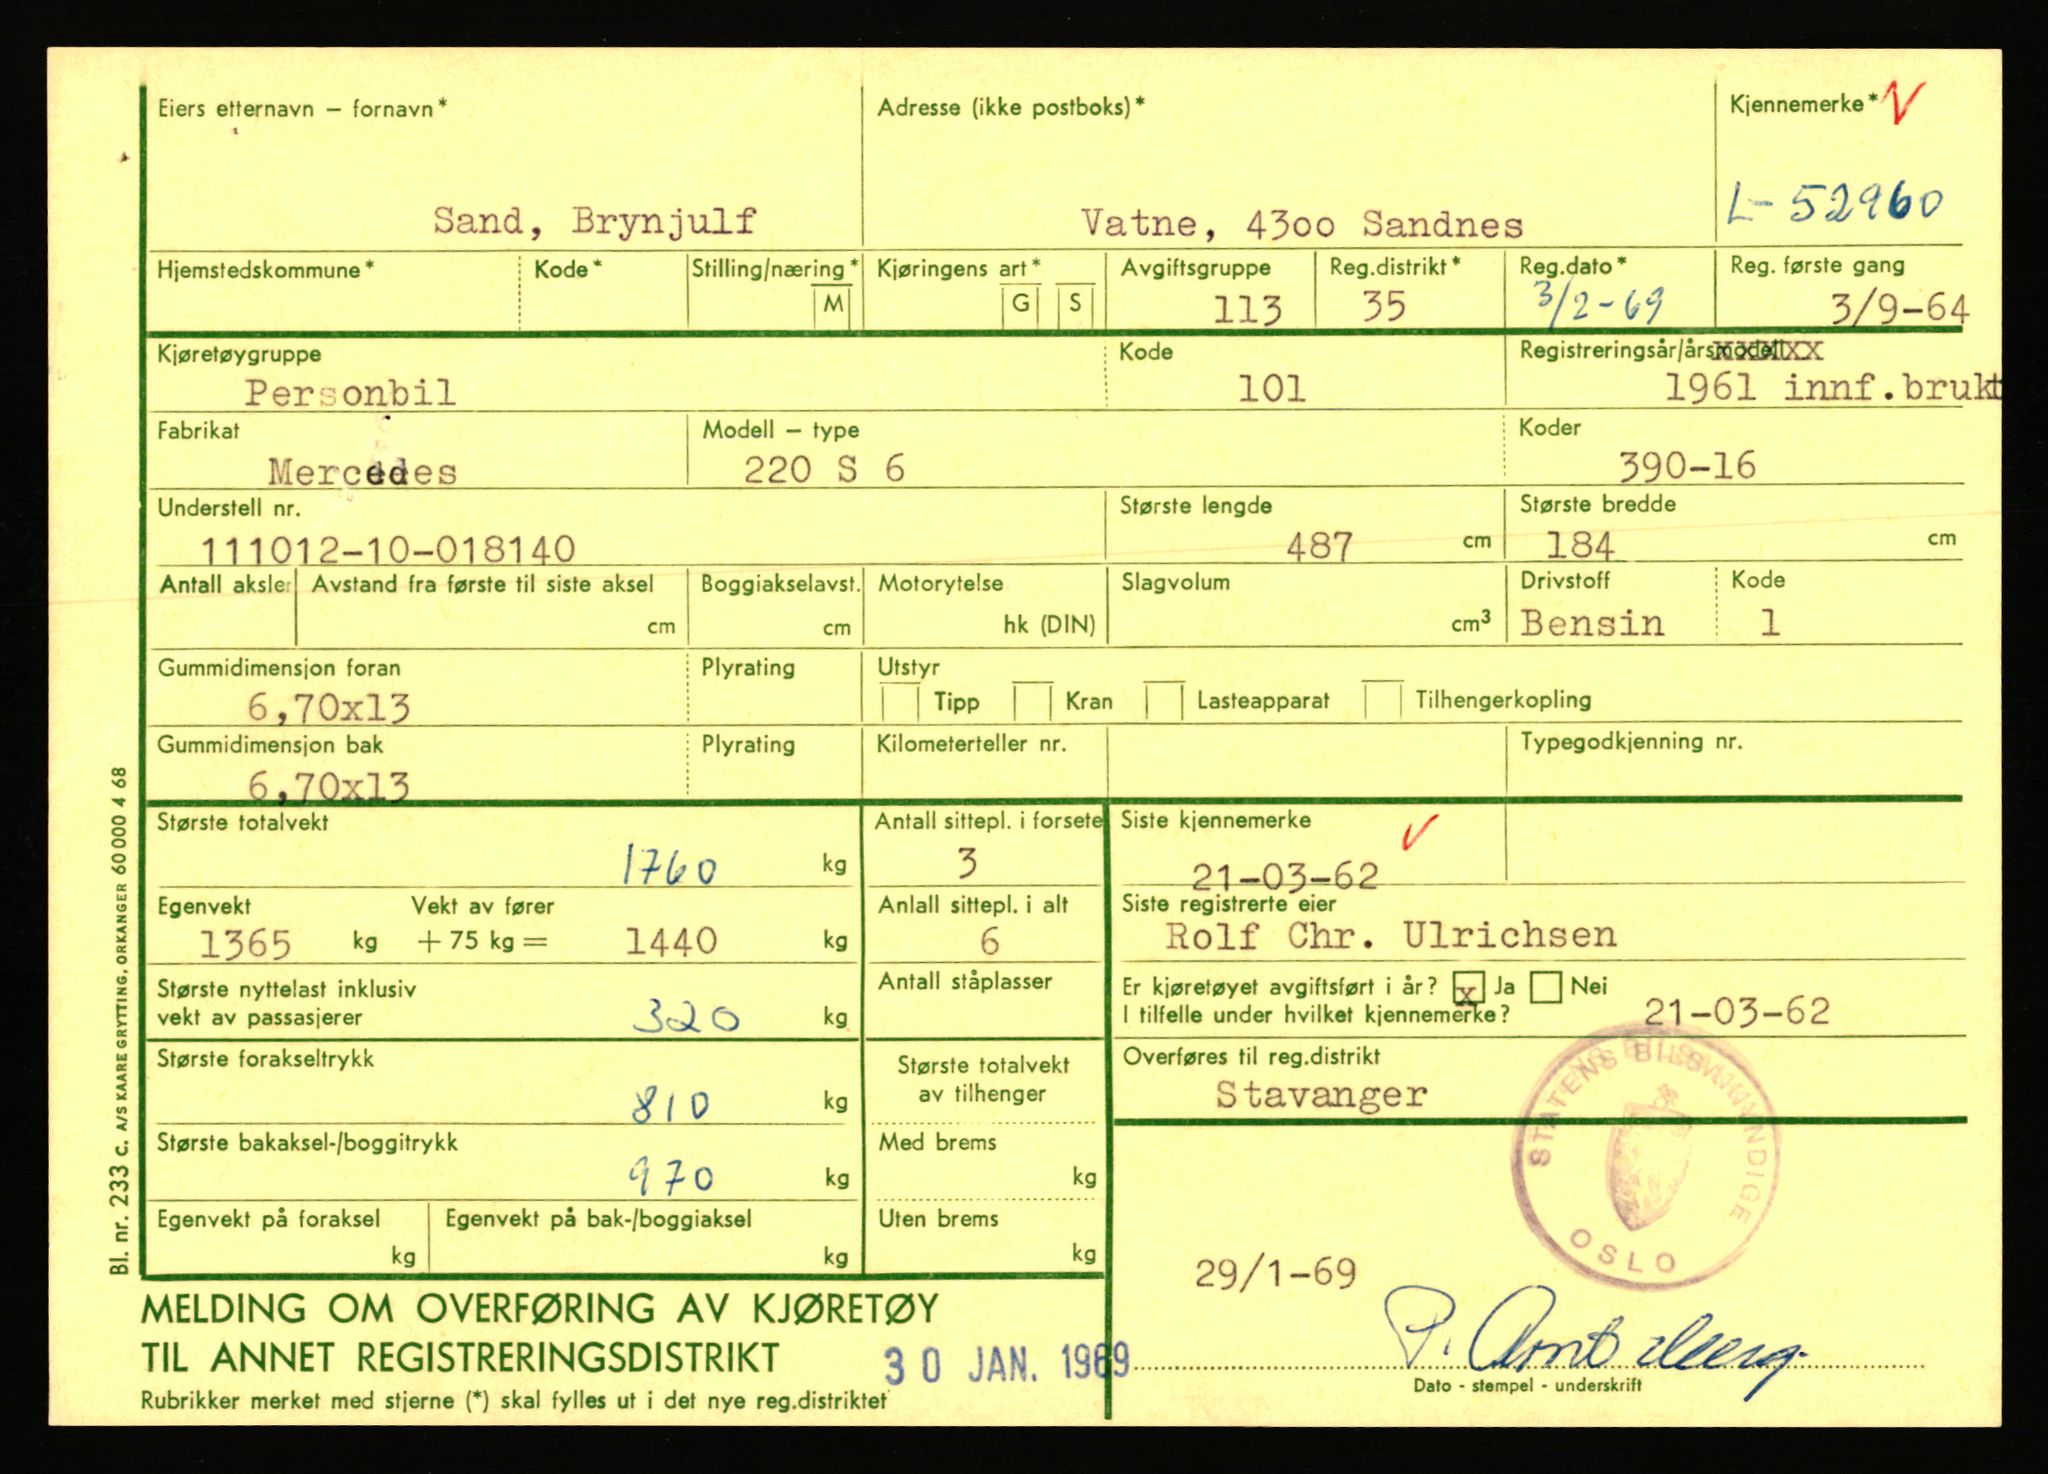 Eiers etternavn – fornavn*
Sand, Brynjulf
Adresse (ikke postboks)*
Vatne, 4300 Sandnes
Kjennemerke*
L-52960
Hjemstedskommune*
Kode*
Stilling/næring*
M
Kjøringens art*
G S
Avgiftsgruppe
113
Reg.distrikt*
35
Reg.dato*
3/2-69
Reg. første gang
3/9-64
Kjøretøygruppe
Personbil
Kode
101
Registreringsår/årsmodell
1961 innf.brukt
Fabrikat
Mercedes
Modell – type
220 S 6
Koder
390-16
Understell nr.
111012-10-018140
Største lengde
487 cm
Største bredde
184 cm
Antall aksler
Avstand fra første til siste aksel
cm
Boggiakselavst.
cm
Motorytelse
hk (DIN)
Slagvolum
cm3
Drivstoff
Bensin
Kode
1
Gummidimensjon foran
6,70x13
Plyrating
Utstyr
Tipp Kran Lasteapparat Tilhengerkopling
Gummidimensjon bak
6,70x13
Plyrating
Kilometerteller nr.
Typegodkjenning nr.
Største totalvekt
1760 kg
Antall sittepl. i forsete
3
Siste kjennemerke
21-03-62
Egenvekt
1365 kg
Vekt av fører
+ 75 kg = 1440 kg
Anlall sittepl. i alt
6
Siste registrerte eier
Rolf Chr. Ulrichsen
Største nyttelast inklusiv
vekt av passasjerer
320 kg
Antall ståplasser
Er kjøretøyet avgiftsført i år? x Ja Nei
I tilfelle under hvilket kjennemerke?
21-03-62
Største forakseltrykk
810 kg
Største totalvekt
av tilhenger
Overføres til reg.distrikt
Stavanger
Største bakaksel-/boggitrykk
970 kg
Med brems
kg
Egenvekt på foraksel
kg
Egenvekt på bak-/boggiaksel
kg
Uten brems
kg
STATENS BILSAKKYNDIGE
OSLO
29/1-69
P.
Dato - stempel - underskrift
MELDING OM OVERFØRING AV KJØRETØY
TIL ANNET REGISTRERINGSDISTRIKT
30 JAN. 1969
Rubrikker merket med stjerne (*) skal fylles ut i det nye reg.distriktet
Bl. nr. 233 c. A/S KAARE GRYTTING, ORKANGER 60 000 4 68